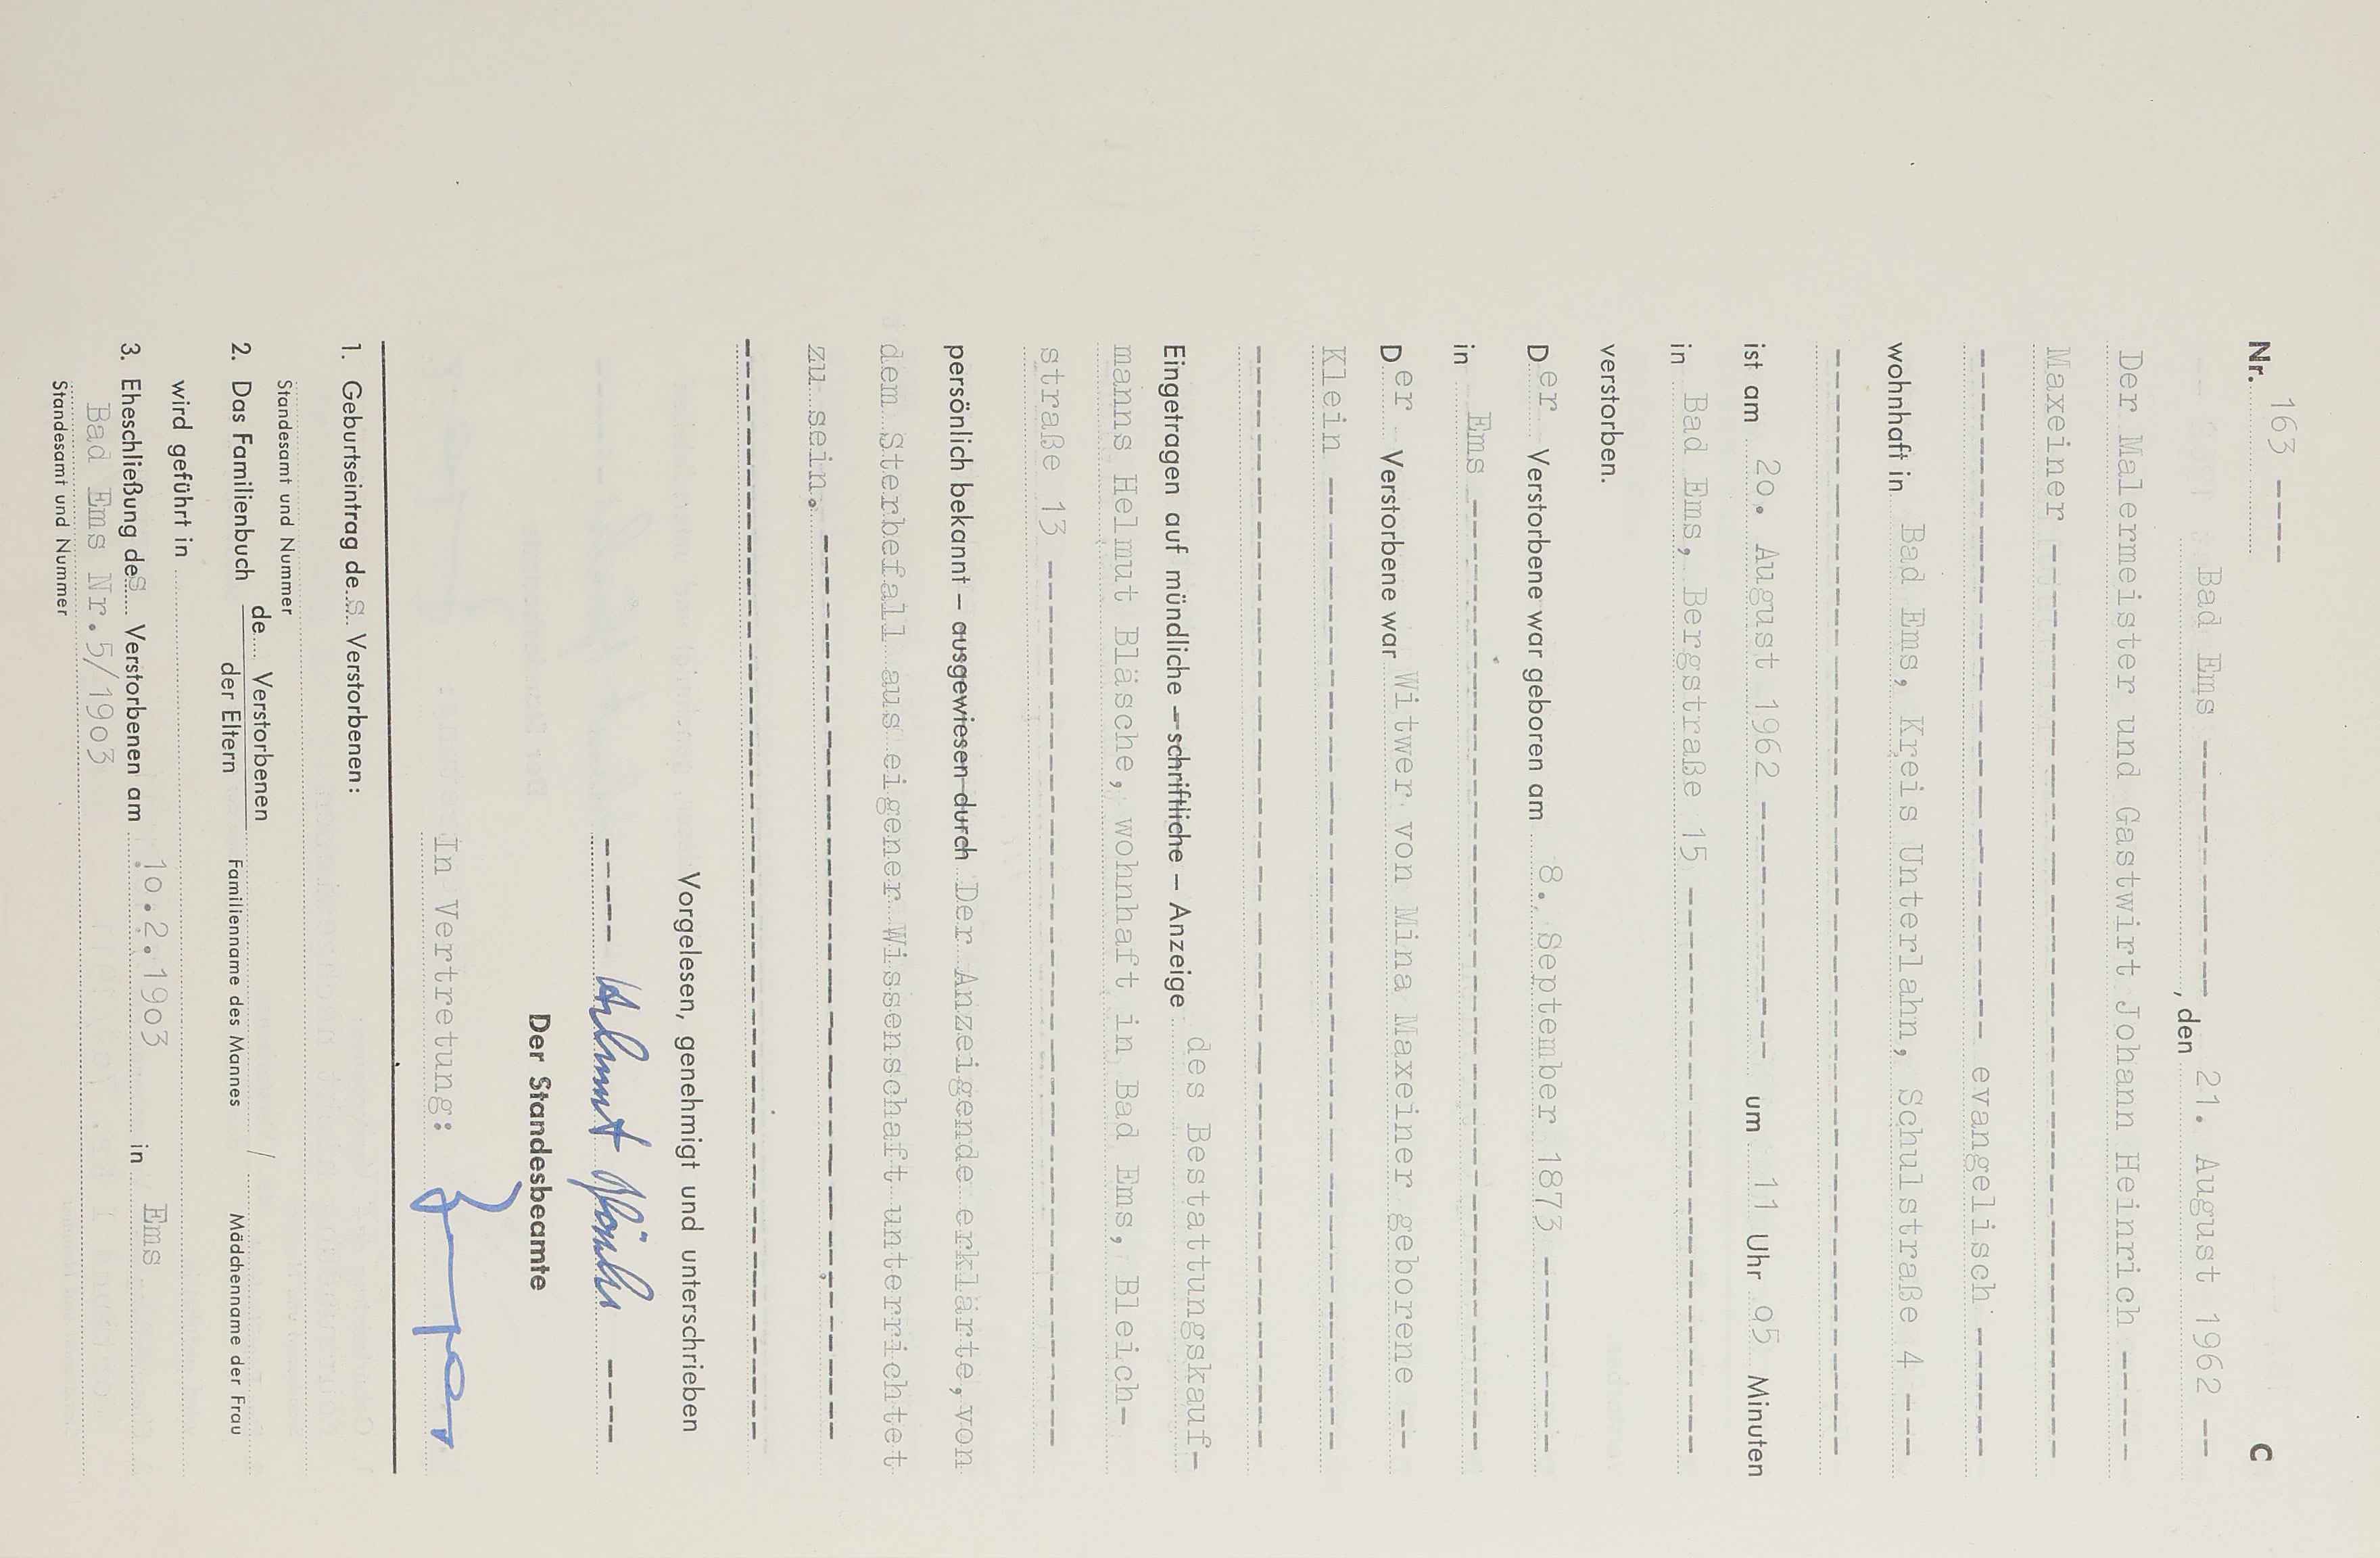 Nr. 163 ---- C
Bad Ems ----------, den 21. August 1962 --
Der Malermeister und Gastwirt Johann Heinrich -----
Maxeiner ----------------------------
---------------------- evangelisch ------
wohnhaft in Bad Ems, Kreis Unterlahn, Schulstraße 4 ---
------------------------------------
ist am 20. August 1962 ----------- um 11 Uhr 05 Minuten
in Bad Ems, Bergstraße 15 -----------------
verstorben.
Der Verstorbene war geboren am 8. September 1873 --------
in Ems ------------------------------
Der Verstorbene war Witwer von Mina Maxeiner geborene --
Klein -------------------------------
------------------------------------
Eingetragen auf mündliche – schriftliche – Anzeige des Bestattungskauf-
manns Helmut Bläsche, wohnhaft in Bad Ems, Bleich-
straße 13 ---------------------------
persönlich bekannt – ausgewiesen durch Der Anzeigende erklärte, von
dem Sterbefall aus eigener Wissenschaft unterrichtet
zu sein. ----------------------------
------------------------------------
Vorgelesen, genehmigt und unterschrieben
---- Helmut Bläsche ----
Der Standesbeamte
In Vertretung:
1. Geburtseintrag des Verstorbenen:
Standesamt und Nummer
2. Das Familienbuch de Verstorbenen
der Eltern Familienname des Mannes / Mädchenname der Frau
wird geführt in
3. Eheschließung des Verstorbenen am 10.2.1903 in Ems
Bad Ems Nr.5/1903
Standesamt und Nummer